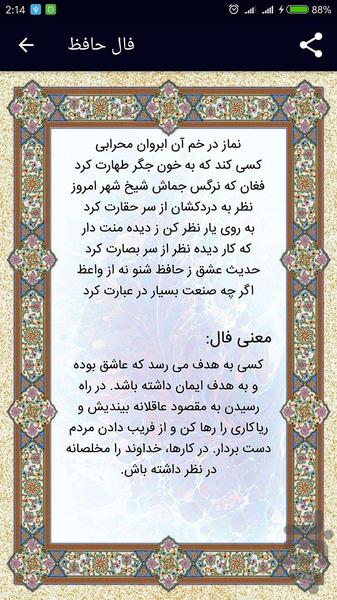 2:14
88%
فال حافظ
نماز در خم آن ابروان محرابی
کسی کند که به خون جگر طهارت کرد
فغان که نرگس جماش شیخ شهر امروز
نظر به دردکشان از سر حقارت کرد
به روی یار نظر کن ز دیده منت دار
که کار دیده نظر از سر بصارت کرد
حدیث عشق ز حافظ شنو نه از واعظ
اگر چه صنعت بسیار در عبارت کرد
معنی فال:
کسی به هدف می رسد که عاشق بوده
و به هدف ایمان داشته باشد. در راه
رسیدن به مقصود عاقلانه بیندیش و
ریاکاری را رها کن و از فریب دادن مردم
دست بردار. در کارها، خداوند را مخلصانه
در نظر داشته باش.